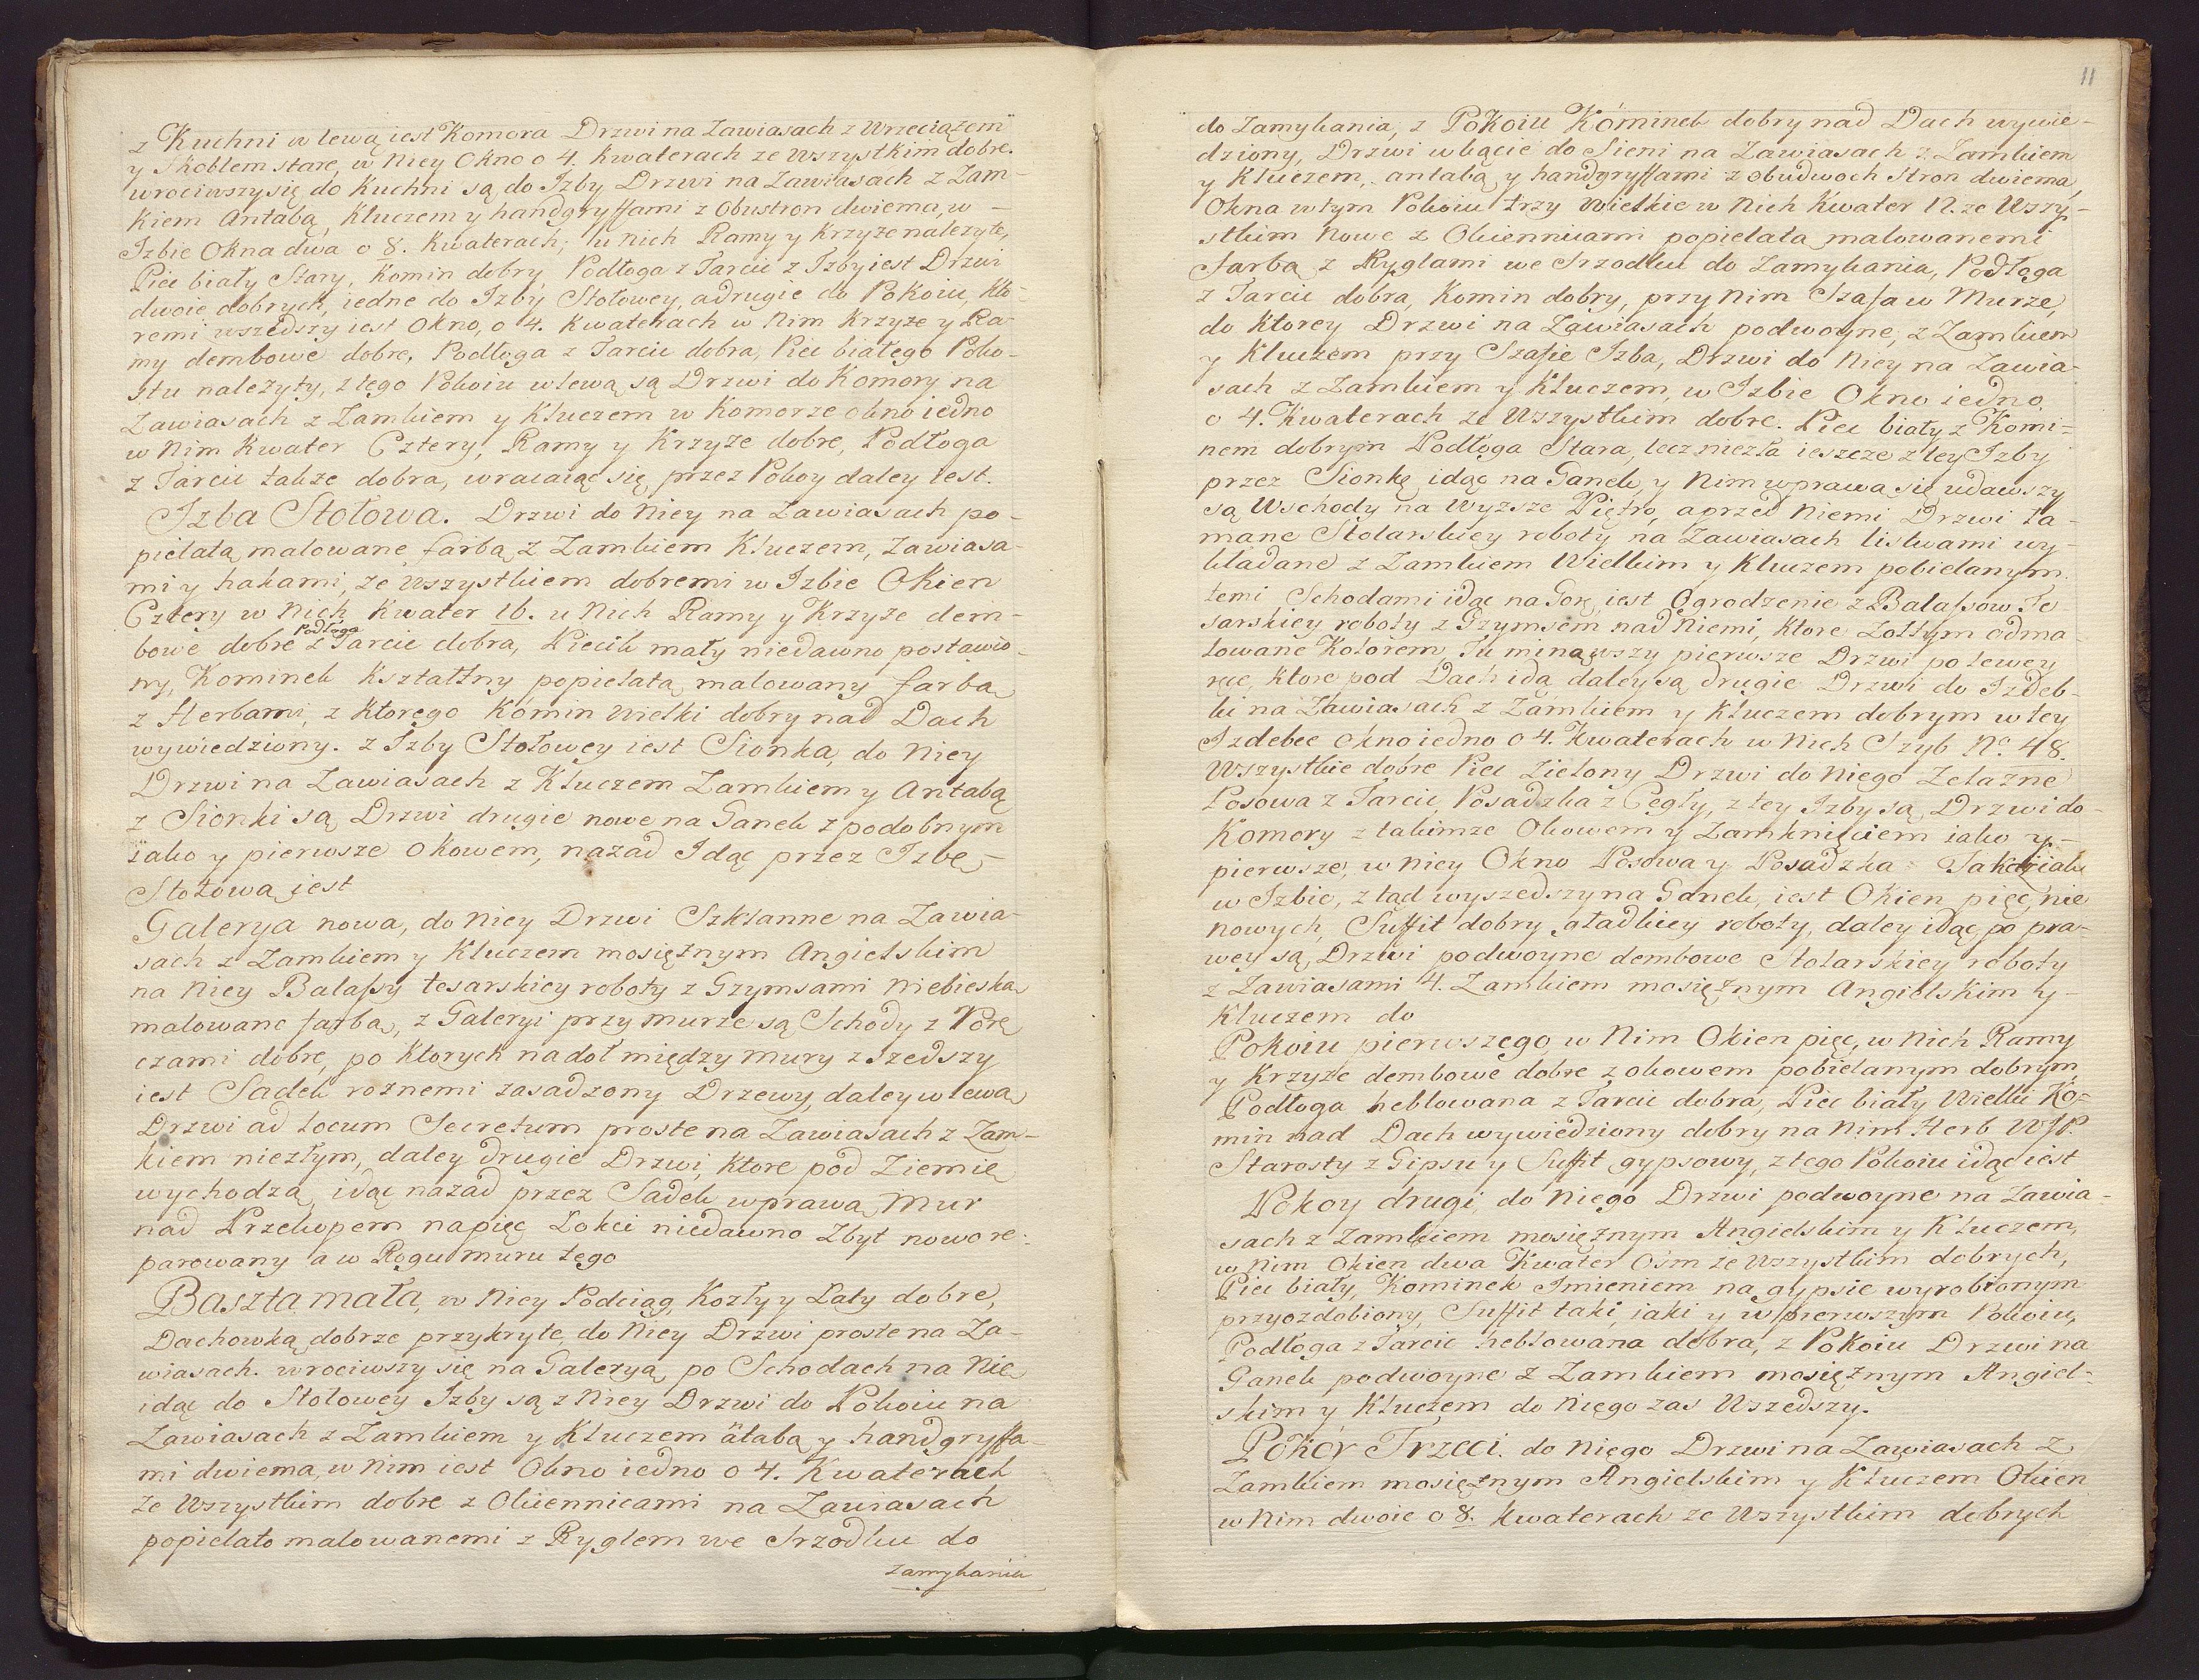 z Kuchni w lewą iest Komora Drzwi na Zawiasach z Wrzeciązem
y Skoblem stare, w Niey Okno o 4. Kwaterach ze Wszystkim dobre.
wrociwszy się do Kuchni są do Izby Drzwi na Zawiasach z Zam-
kiem Antabą, Kluczem y handgryffami z Obustron dwiema, w -
Izbie Okna dwa o 8. Kwaterach; u nich Ramy y Krzyże należyte,
Piec biały Stary, Komin dobry, Podłoga z Tarcic z Izby iest Drzwi
dwoie dobrych, iedne do Izby Stołowey, a drugie do Pokoiu, Kto-
remi wszedszy iest Okno, o 4. Kwaterach w Nim Krzyże y Ra-
my dembowe dobre, Podłoga z Tarcic dobra, Piec białego Poko-
stu należyty, z tego Pokoiu w lewą są Drzwi do Komory na
Zawiasach z Zamkiem y Kluczem w Komorze okno iedno
w Nim Kwater Cztery, Ramy y Krzyże dobre, Podłoga
z Tarcic także dobra, wracaiąc się przez Pokoy daley iest.
Izba Stołowa. Drzwi do Niey na Zawiasach po-
pielatą malowane farbą z Zamkiem Kluczem, Zawiasa-
mi y hakami, ze wszystkiem dobremi w Izbie Okien
Cztery w Nich Kwater 16. u Nich Ramy y Krzyże dem-
bowe dobre Podłoga z Tarcic dobra, Piecik mały niedawno postawio-
ny, Kominek Kształtny popielatą malowany farbą
z Herbami, z Ktorego Komin Wielki dobry nad Dach
wywiedziony. z Izby Stołowey iest Sionka, do Niey
Drzwi na Zawiasach z Kluczem Zamkiem y Antabą
z Sionki są Drzwi drugie nowe na Ganek z podobnym
iako y pierwsze Okowem, nazad Idąc przez Izbę
Stołową iest
Galerya nowa, do Niey Drzwi Szklanne na Zawia-
sach z Zamkiem y Kluczem mosiężnym Angielskim
na Niey Balassy tesarskiey roboty z Gzymsami Niebieską
malowane farbą, z Galeryi przy murze są Schody z Porę
czami dobre, po Ktorych na doł między mury z Szedszy
iest Sadek roznemi zasadzony Drzewy, daley w lewą
Drzwi ad Locum Secretum proste na Zawiasach z Zam-
kiem niezłym, daley drugie Drzwi, Ktore pod Ziemię
wychodzą, idąc nazad przez Sadek w prawą Mur
nad Przekopem na pięc Łokci niedawno Zbyt nowo re-
parowany a w Rogu muru tego
Baszta mała, w Niey Podciąg, Kozły y Łaty dobre,
Dachowką dobrze przykryte, do Niey Drzwi proste na Za-
wiasach. wrociwszy się na Galeryą po Schodach na Nię
idąc do Stołowey Izby są z Niey Drzwi do Pokoiu na
Zawiasach z Zamkiem y Kluczem ätabą y handgryffa-
mi dwiema, w Nim iest Okno iedno o 4. Kwaterach
ze Wszystkim dobre z Okiennicami na Zawiasach
popielato malowanemi z Ryglem we Srzodku do
zamykania
11
do Zamykania, z Pokoiu Kominek dobry nad Dach wywie-
dziony, Drzwi w kącie do Sieni na Zawiasach z Zamkiem
y Kluczem, antabą y handgryffami z obudwoch Stron dwiema,
Okna w tym Pokoiu trzy Wielkie w Nich Kwater 12. ze Wszy-
stkim Nowe z Okiennicami popielatą malowanemi
Farbą z Ryglami we Srzodku do Zamykania, Podłoga
z Tarcic dobra, Komin dobry, przy Nim Szafa w Murze,
do Ktorey Drzwi na Zawiasach podwoyne, z Zamkiem
y Kluczem przy Szafie Izba, Drzwi do Niey na Zawia-
sach z Zamkiem y Kluczem, w Izbie Okno iedno
o 4. Kwaterach ze Wszystkim dobre. Piec biały z Komi-
nem dobrym Podłoga Stara, lecz niezła ieszcze z tey Izby
przez Sionkę idąc na Ganek y Nim w prawą się udawszy
są Wschody na Wyzsze Piętro, a przed Niemi Drzwi ła-
mane Stolarskiey roboty na Zawiasach listwami wy-
kładane z Zamkiem Wielkim y Kluczem pobielanym.
temi Schodami idąc na Gorę, iest Ogrodzenie z Balassow Te-
sarskiey roboty z Gzymsem nad Niemi, Ktore Zołtym odma-
lowane Kolorem Tu minąwszy pierwsze Drzwi po lewey
ręce, Ktore pod Dach idą daley są drugie Drzwi do Izdeb-
ki na Zawiasach z Zamkiem y Kluczem dobrym w tey
Izdebce okno iedno o 4. Kwaterach w Nich Szyb No 48.
Wszystkie dobre Piec Zielony Drzwi do Niego Żelazne
Posowa z Tarcic, Posadzka z Cegły, z tey Izby są Drzwi do
Komory z takimze Okowem y Zamknięciem iako y -
pierwsze, w Niey Okno Posowa y Posadzka Taka iaka
w Izbie, z tąd wyszedszy na Ganek, iest Okien pięc, nie
nowych, Suffit dobry gładkiey roboty, daley idąc po pra-
wey są, Drzwi podwoyne dembowe Stolarskiey roboty
z Zawiasami 4. Zamkiem mosiężnym Angielskim y -
Kluczem do
Pokoiu pierwszego w Nim Okien pięc, w Nich Ramy
y Krzyże dembowe dobre z okowem pobielanym dobrym
Podłoga heblowana z Tarcic dobra, Piec biały Wielki Ko-
min nad Dach wywiedziony dobry na Nim Herb WJP.
Starosty z Gipsu y Suffit gypsowy, z tego Pokoiu idąc iest
Pokoy drugi, do Niego Drzwi podwoyne na Zawia-
sach z Zamkiem mosiężnym Angielskim y Kluczem,
w Nim Okien dwa Kwater Ośm ze Wszystkim dobrych,
Piec biały, Kominek Imieniem na gypsie wyrobionym
przyozdobiony, Suffit taki, jaki y w pierwszym Pokoiu,
Podłoga z Tarcic heblowana dobra, z Pokoiu Drzwi na
Ganek podwoyne z Zamkiem mosiężnym Angiel-
skim y Kluczem do Niego zas Wszedszy.
Pokoy Trzeci. do Niego Drzwi na Zawiasach z
Zamkiem mosiężnym Angielskim y Kluczem Okien
w Nim dwoie o 8. Kwaterach ze Wszystkim dobrych